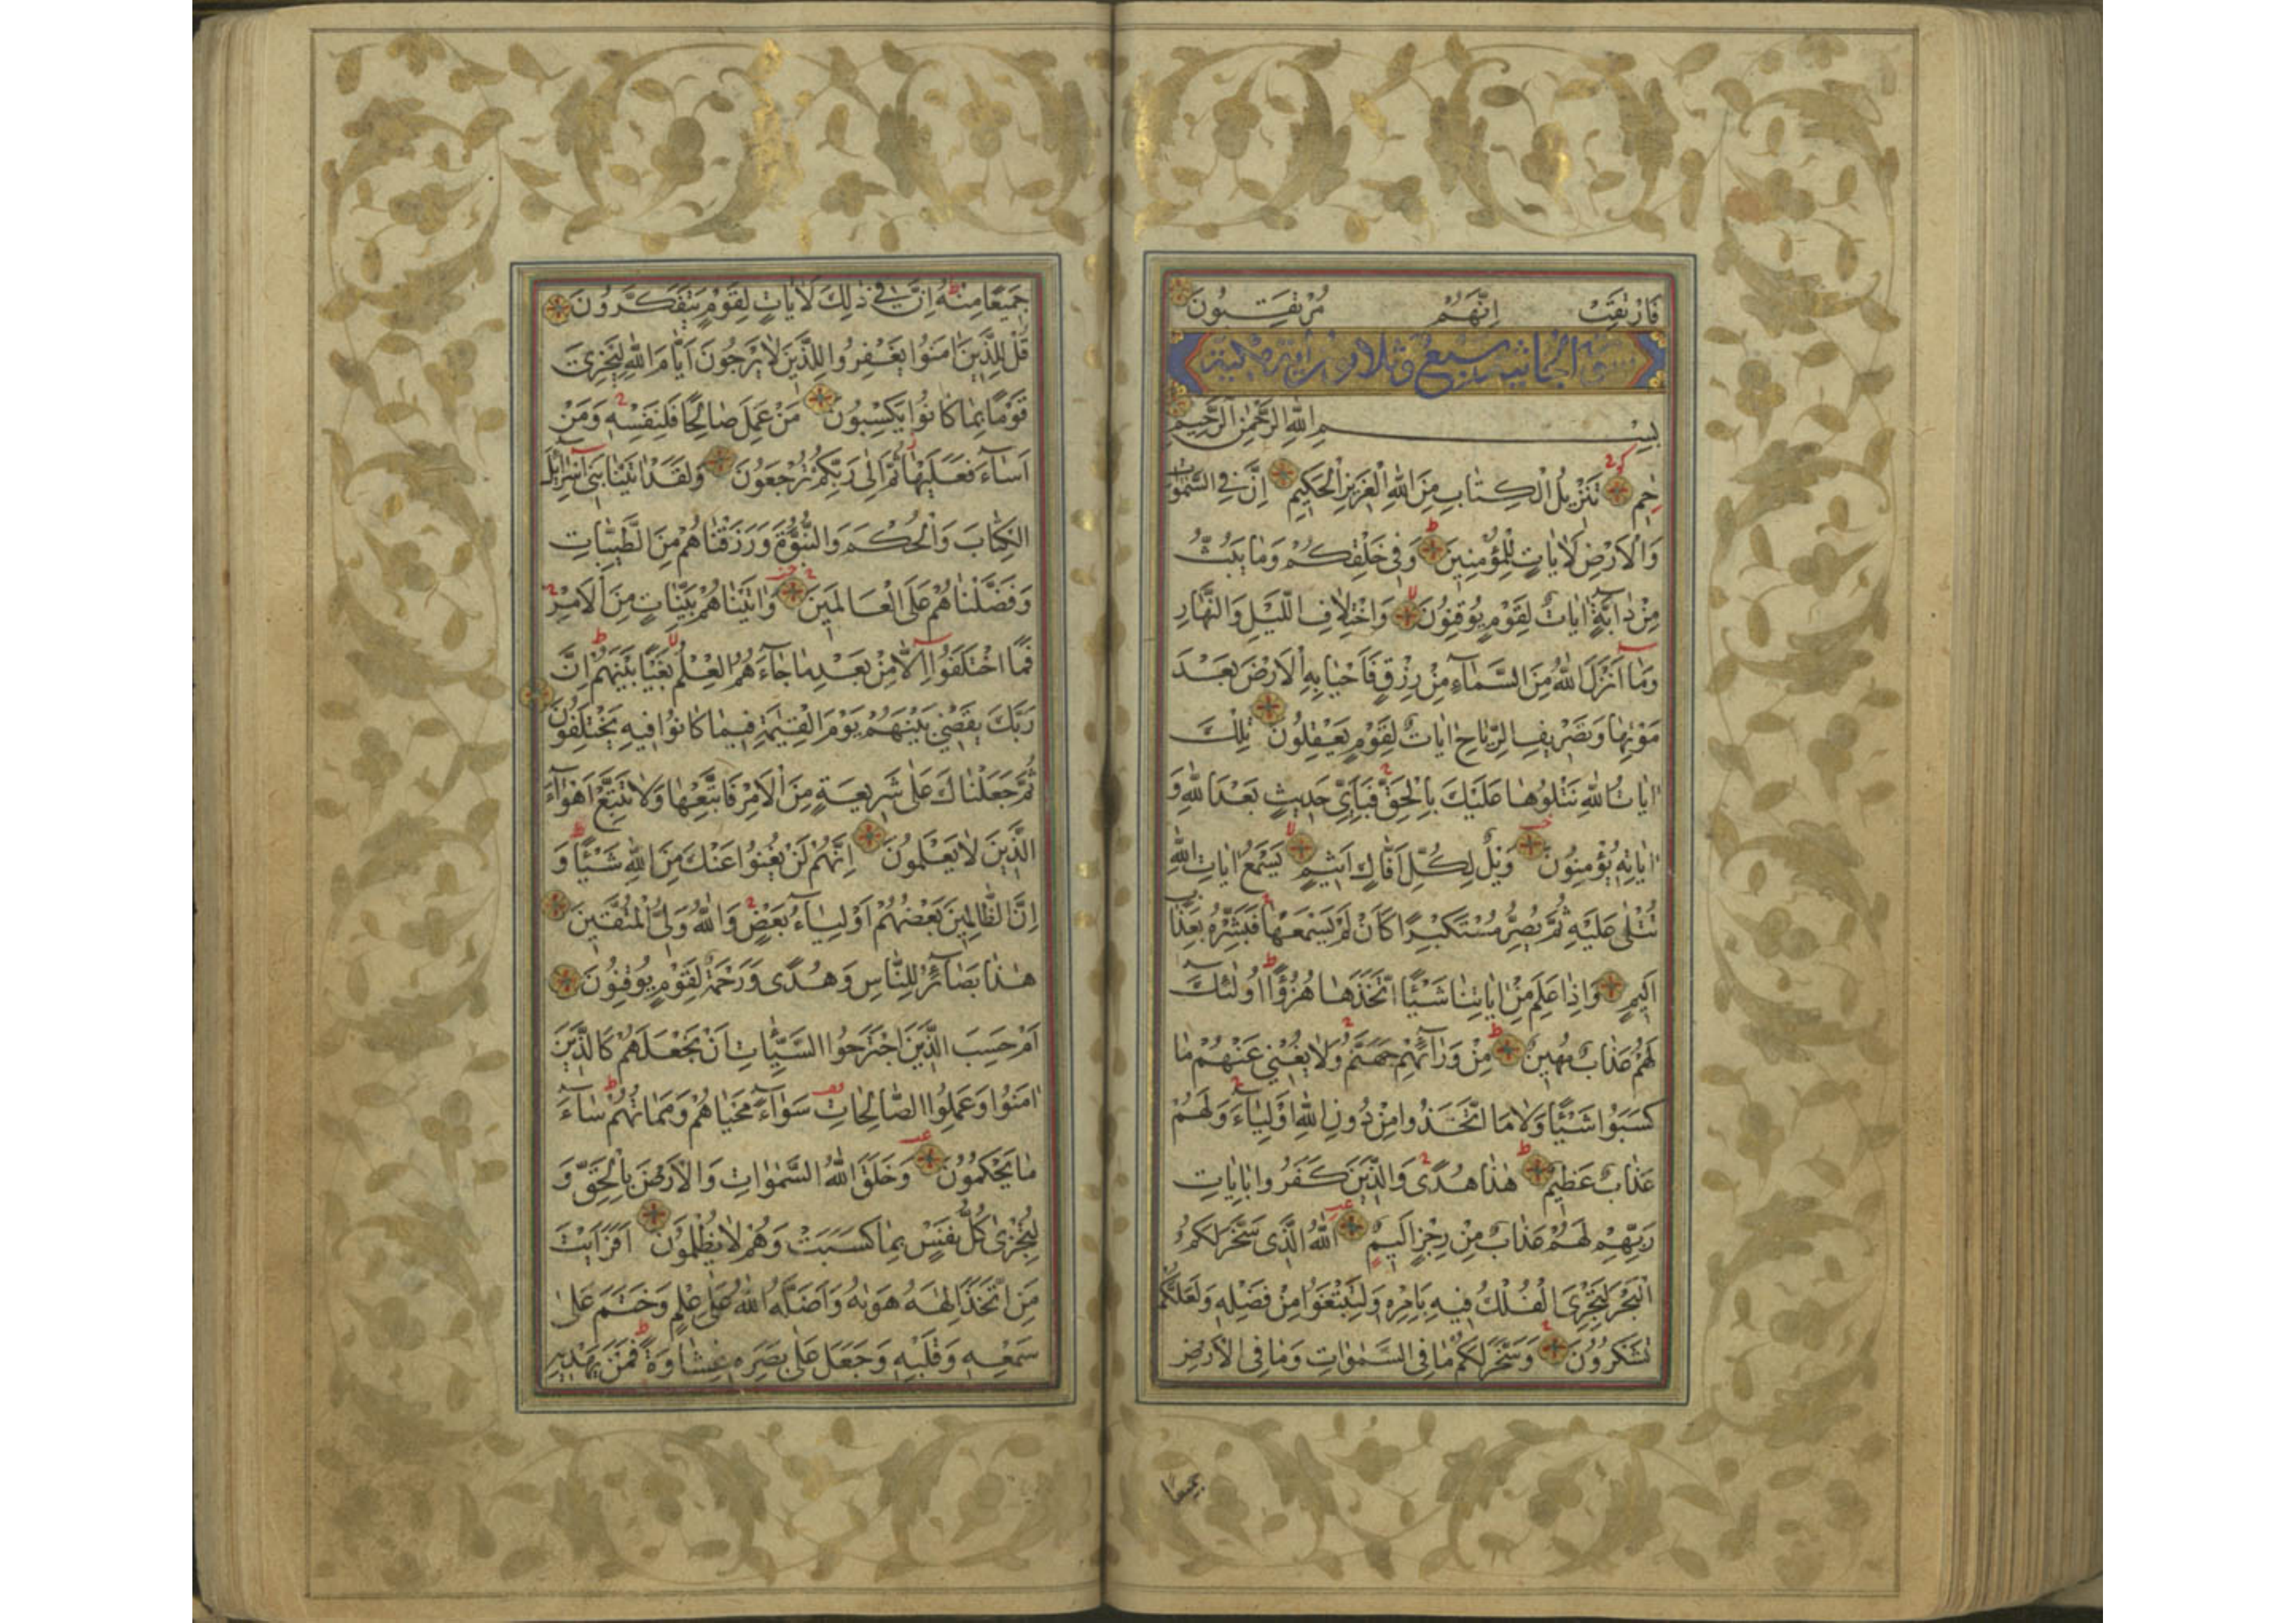 فَارْتَقِبْ اِنَّهُمْ مُرْتَقِبُونَ
سورة الجاثية سبع وثلاثون اية مكية
بِسْمِ اللّٰهِ الرَّحْمٰنِ الرَّحِيمِ
حٰمٓ تَنْزِيلُ الْكِتَابِ مِنَ اللّٰهِ الْعَزِيزِ الْحَكِيمِ اِنَّ فِي السَّمٰوَاتِ
وَالْاَرْضِ لَاٰيَاتٍ لِلْمُؤْمِنِينَ وَفِي خَلْقِكُمْ وَمَا يَبُثُّ
مِنْ دَابَّةٍ اٰيَاتٌ لِقَوْمٍ يُوقِنُونَ وَاخْتِلَافِ الَّيْلِ وَالنَّهَارِ
وَمَا اَنْزَلَ اللّٰهُ مِنَ السَّمَاءِ مِنْ رِزْقٍ فَاَحْيَا بِهِ الْاَرْضَ بَعْدَ
مَوْتِهَا وَتَصْرِيفِ الرِّيَاحِ اٰيَاتٌ لِقَوْمٍ يَعْقِلُونَ تِلْكَ
اٰيَاتُ اللّٰهِ نَتْلُوهَا عَلَيْكَ بِالْحَقِّ فَبِاَيِّ حَدِيثٍ بَعْدَ اللّٰهِ وَ
اٰيَاتِهِ يُؤْمِنُونَ وَيْلٌ لِكُلِّ اَفَّاكٍ اَثِيمٍ يَسْمَعُ اٰيَاتِ اللّٰهِ
تُتْلٰى عَلَيْهِ ثُمَّ يُصِرُّ مُسْتَكْبِرًا كَاَنْ لَمْ يَسْمَعْهَا فَبَشِّرْهُ بِعَذَابٍ
اَلِيمٍ وَاِذَا عَلِمَ مِنْ اٰيَاتِنَا شَيْئًا اتَّخَذَهَا هُزُؤًا اُولٰئِكَ
لَهُمْ عَذَابٌ مُهِينٌ مِنْ وَرَائِهِمْ جَهَنَّمُ وَلَا يُغْنِي عَنْهُمْ مَا
كَسَبُوا شَيْئًا وَلَا مَا اتَّخَذُوا مِنْ دُونِ اللّٰهِ اَوْلِيَاءَ وَلَهُمْ
عَذَابٌ عَظِيمٌ هٰذَا هُدًى وَالَّذِينَ كَفَرُوا بِاٰيَاتِ
رَبِّهِمْ لَهُمْ عَذَابٌ مِنْ رِجْزٍ اَلِيمٌ اَللّٰهُ الَّذِي سَخَّرَ لَكُمُ
الْبَحْرَ لِتَجْرِيَ الْفُلْكُ فِيهِ بِاَمْرِهِ وَلِتَبْتَغُوا مِنْ فَضْلِهِ وَلَعَلَّكُمْ
تَشْكُرُونَ وَسَخَّرَ لَكُمْ مَا فِي السَّمٰوَاتِ وَمَا فِي الْاَرْضِ
جميعا
جَمِيعًا مِنْهُ اِنَّ فِي ذٰلِكَ لَاٰيَاتٍ لِقَوْمٍ يَتَفَكَّرُونَ
قُلْ لِلَّذِينَ اٰمَنُوا يَغْفِرُوا لِلَّذِينَ لَا يَرْجُونَ اَيَّامَ اللّٰهِ لِيَجْزِيَ
قَوْمًا بِمَا كَانُوا يَكْسِبُونَ مَنْ عَمِلَ صَالِحًا فَلِنَفْسِهِ وَمَنْ
اَسَاءَ فَعَلَيْهَا ثُمَّ اِلٰى رَبِّكُمْ تُرْجَعُونَ وَلَقَدْ اٰتَيْنَا بَنِي اِسْرَائِلَ
الْكِتَابَ وَالْحُكْمَ وَالنُّبُوَّةَ وَرَزَقْنَاهُمْ مِنَ الطَّيِّبَاتِ
وَفَضَّلْنَاهُمْ عَلَى الْعَالَمِينَ وَاٰتَيْنَاهُمْ بَيِّنَاتٍ مِنَ الْاَمْرِ
فَمَا اخْتَلَفُوا اِلَّا مِنْ بَعْدِ مَا جَاءَهُمُ الْعِلْمُ بَغْيًا بَيْنَهُمْ اِنَّ
رَبَّكَ يَقْضِي بَيْنَهُمْ يَوْمَ الْقِيٰمَةِ فِيمَا كَانُوا فِيهِ يَخْتَلِفُونَ
ثُمَّ جَعَلْنَاكَ عَلٰى شَرِيعَةٍ مِنَ الْاَمْرِ فَاتَّبِعْهَا وَلَا تَتَّبِعْ اَهْوَاءَ
الَّذِينَ لَا يَعْلَمُونَ اِنَّهُمْ لَنْ يُغْنُوا عَنْكَ مِنَ اللّٰهِ شَيْئًا وَ
اِنَّ الظَّالِمِينَ بَعْضُهُمْ اَوْلِيَاءُ بَعْضٍ وَاللّٰهُ وَلِيُّ الْمُتَّقِينَ
هٰذَا بَصَائِرُ لِلنَّاسِ وَهُدًى وَرَحْمَةٌ لِقَوْمٍ يُوقِنُونَ
اَمْ حَسِبَ الَّذِينَ اجْتَرَحُوا السَّيِّئَاتِ اَنْ نَجْعَلَهُمْ كَالَّذِينَ
اٰمَنُوا وَعَمِلُوا الصَّالِحَاتِ سَوَاءً مَحْيَاهُمْ وَمَمَاتُهُمْ سَاءَ
مَا يَحْكُمُونَ وَخَلَقَ اللّٰهُ السَّمٰوَاتِ وَالْاَرْضَ بِالْحَقِّ وَ
لِتُجْزٰى كُلُّ نَفْسٍ بِمَا كَسَبَتْ وَهُمْ لَا يُظْلَمُونَ اَفَرَاَيْتَ
مَنِ اتَّخَذَ اِلٰهَهُ هَوٰيهُ وَاَضَلَّهُ اللّٰهُ عَلٰى عِلْمٍ وَخَتَمَ عَلٰى
سَمْعِهِ وَقَلْبِهِ وَجَعَلَ عَلٰى بَصَرِهِ غِشَاوَةً فَمَنْ يَهْدِيهِ